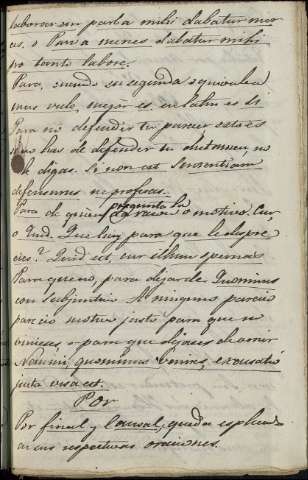 laborar un parba mihi dabatur mer
ces, o Parva merces dabatur mihi
pro tanto labore.
Para, siendo su segunda equivalen
mas vale, mejor es en latin es si
Para no defender tu parecer esta es
has de defender tu dictamen, no
le digas. Si non est sententiam
defensurus ne proferas.
Para de quien pregunta la causa o motivo. Cur
o Quid. Que hay para que le despre
cies? Quid est, cur illum spernas
Para que no, para dejar de Quominus
con subjuntivo. A ninguno pareció
motivo justo para que no
vinieses, o para que dejases de venir
Nemini, quominus venires, excusatio
justa visa est.
Por
Por final y causal, quedan explicado
en sus respectivas oraciones.